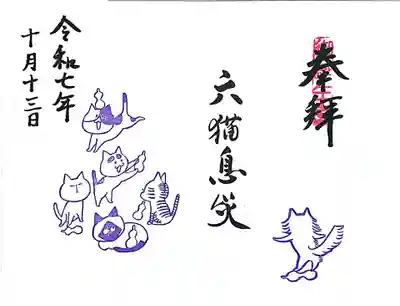 奉拝
六猫息災
令和七年
十月十三日